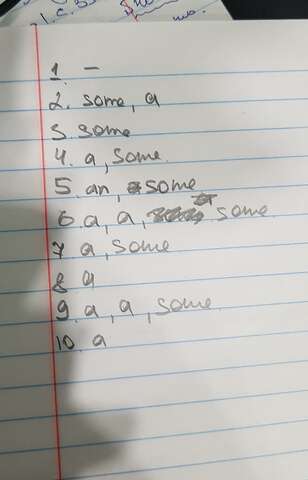 1. –
2. some, a
3. some
4. a, some
5. an, some
6. a, a, some
7. a, some
8 a
9. a, a, some
10. a